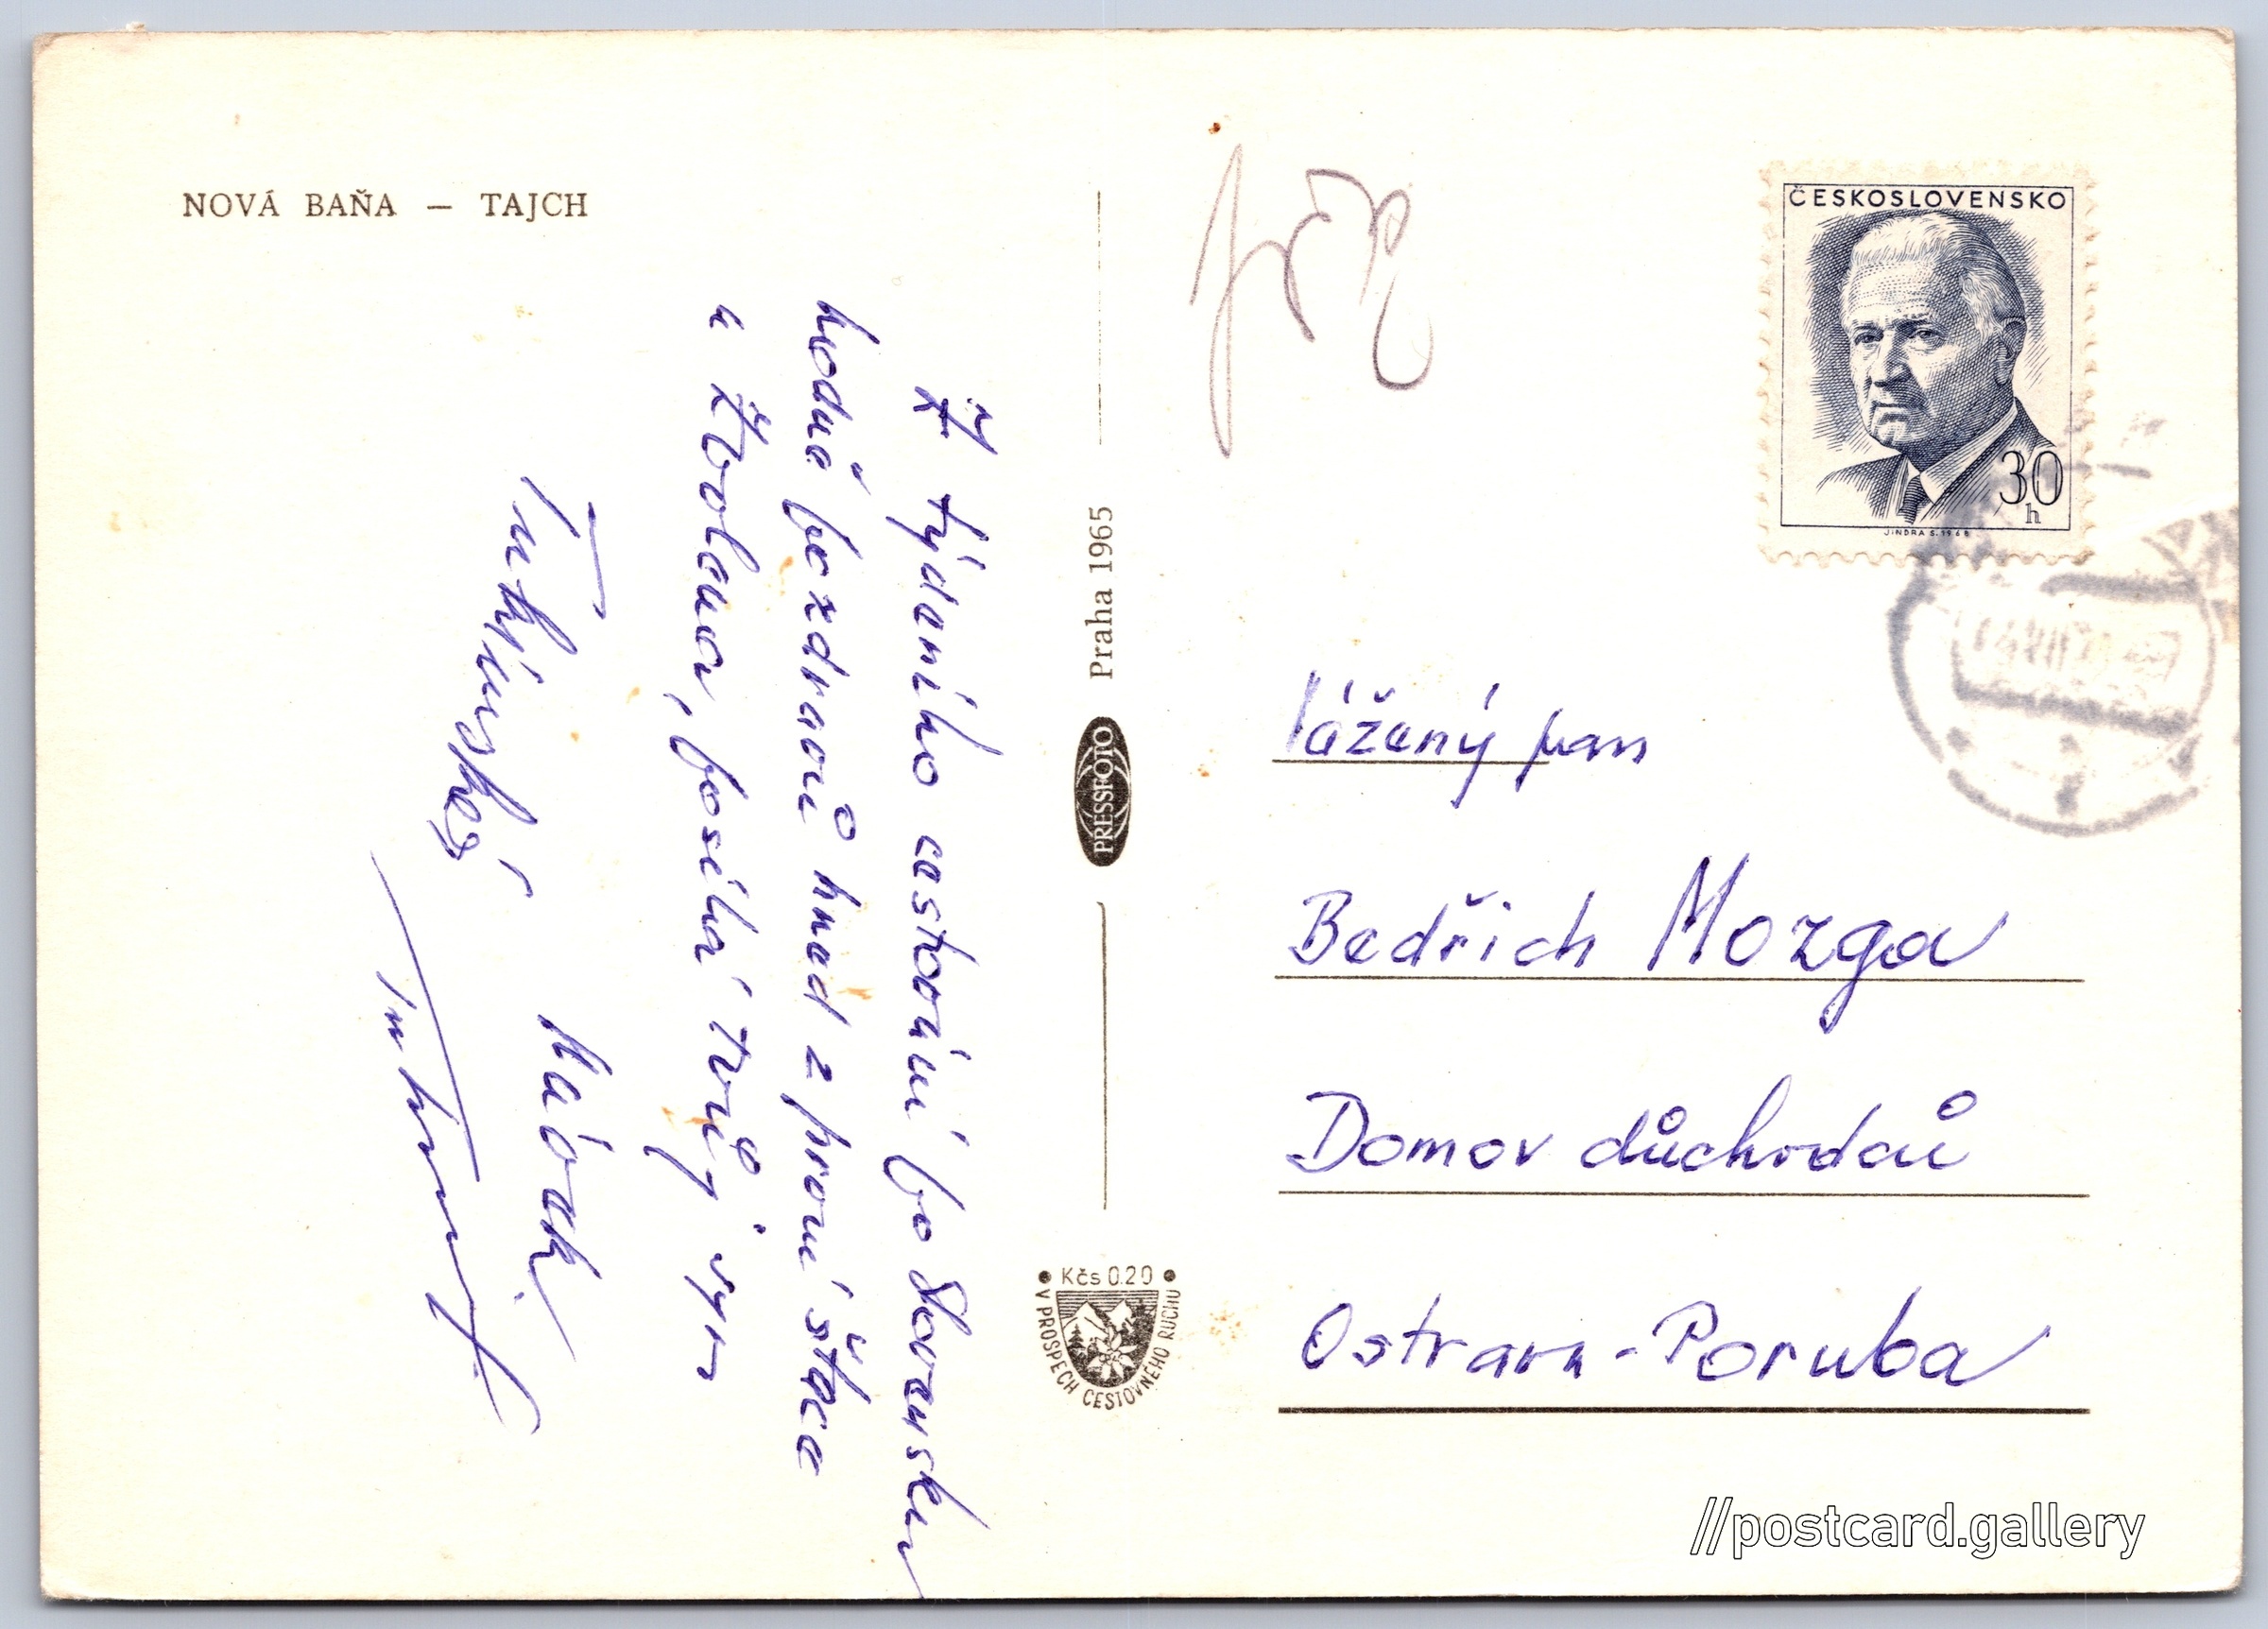 NOVÁ BAŇA — TAJCH
Z týdeního cestování po Slovensku
hodně pozdravů hned z první štace
u Zvolena, posílá Tvůj syn
Praha 1965
PRESSFOTO
Kčs 0.20
V PROSPECH CESTOVNÉHO RUCHU
ČESKOSLOVENSKO
30
h
JINDRA S. 1968
Vážený pan
Bedřich Mozga
Domov důchodců
Ostrava-Poruba
//postcard.gallery